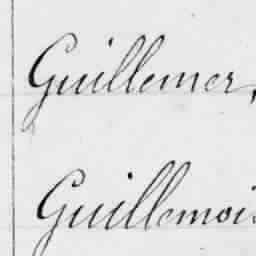 Guillemer,
Guillemois